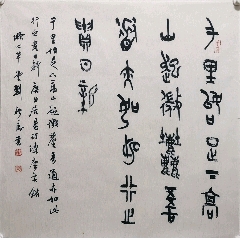 千里始足下高
山起微塵吾
道亦如此行之
貴日新
千里始足下高山起微塵吾道亦如此
行之貴日新唐白居易詩